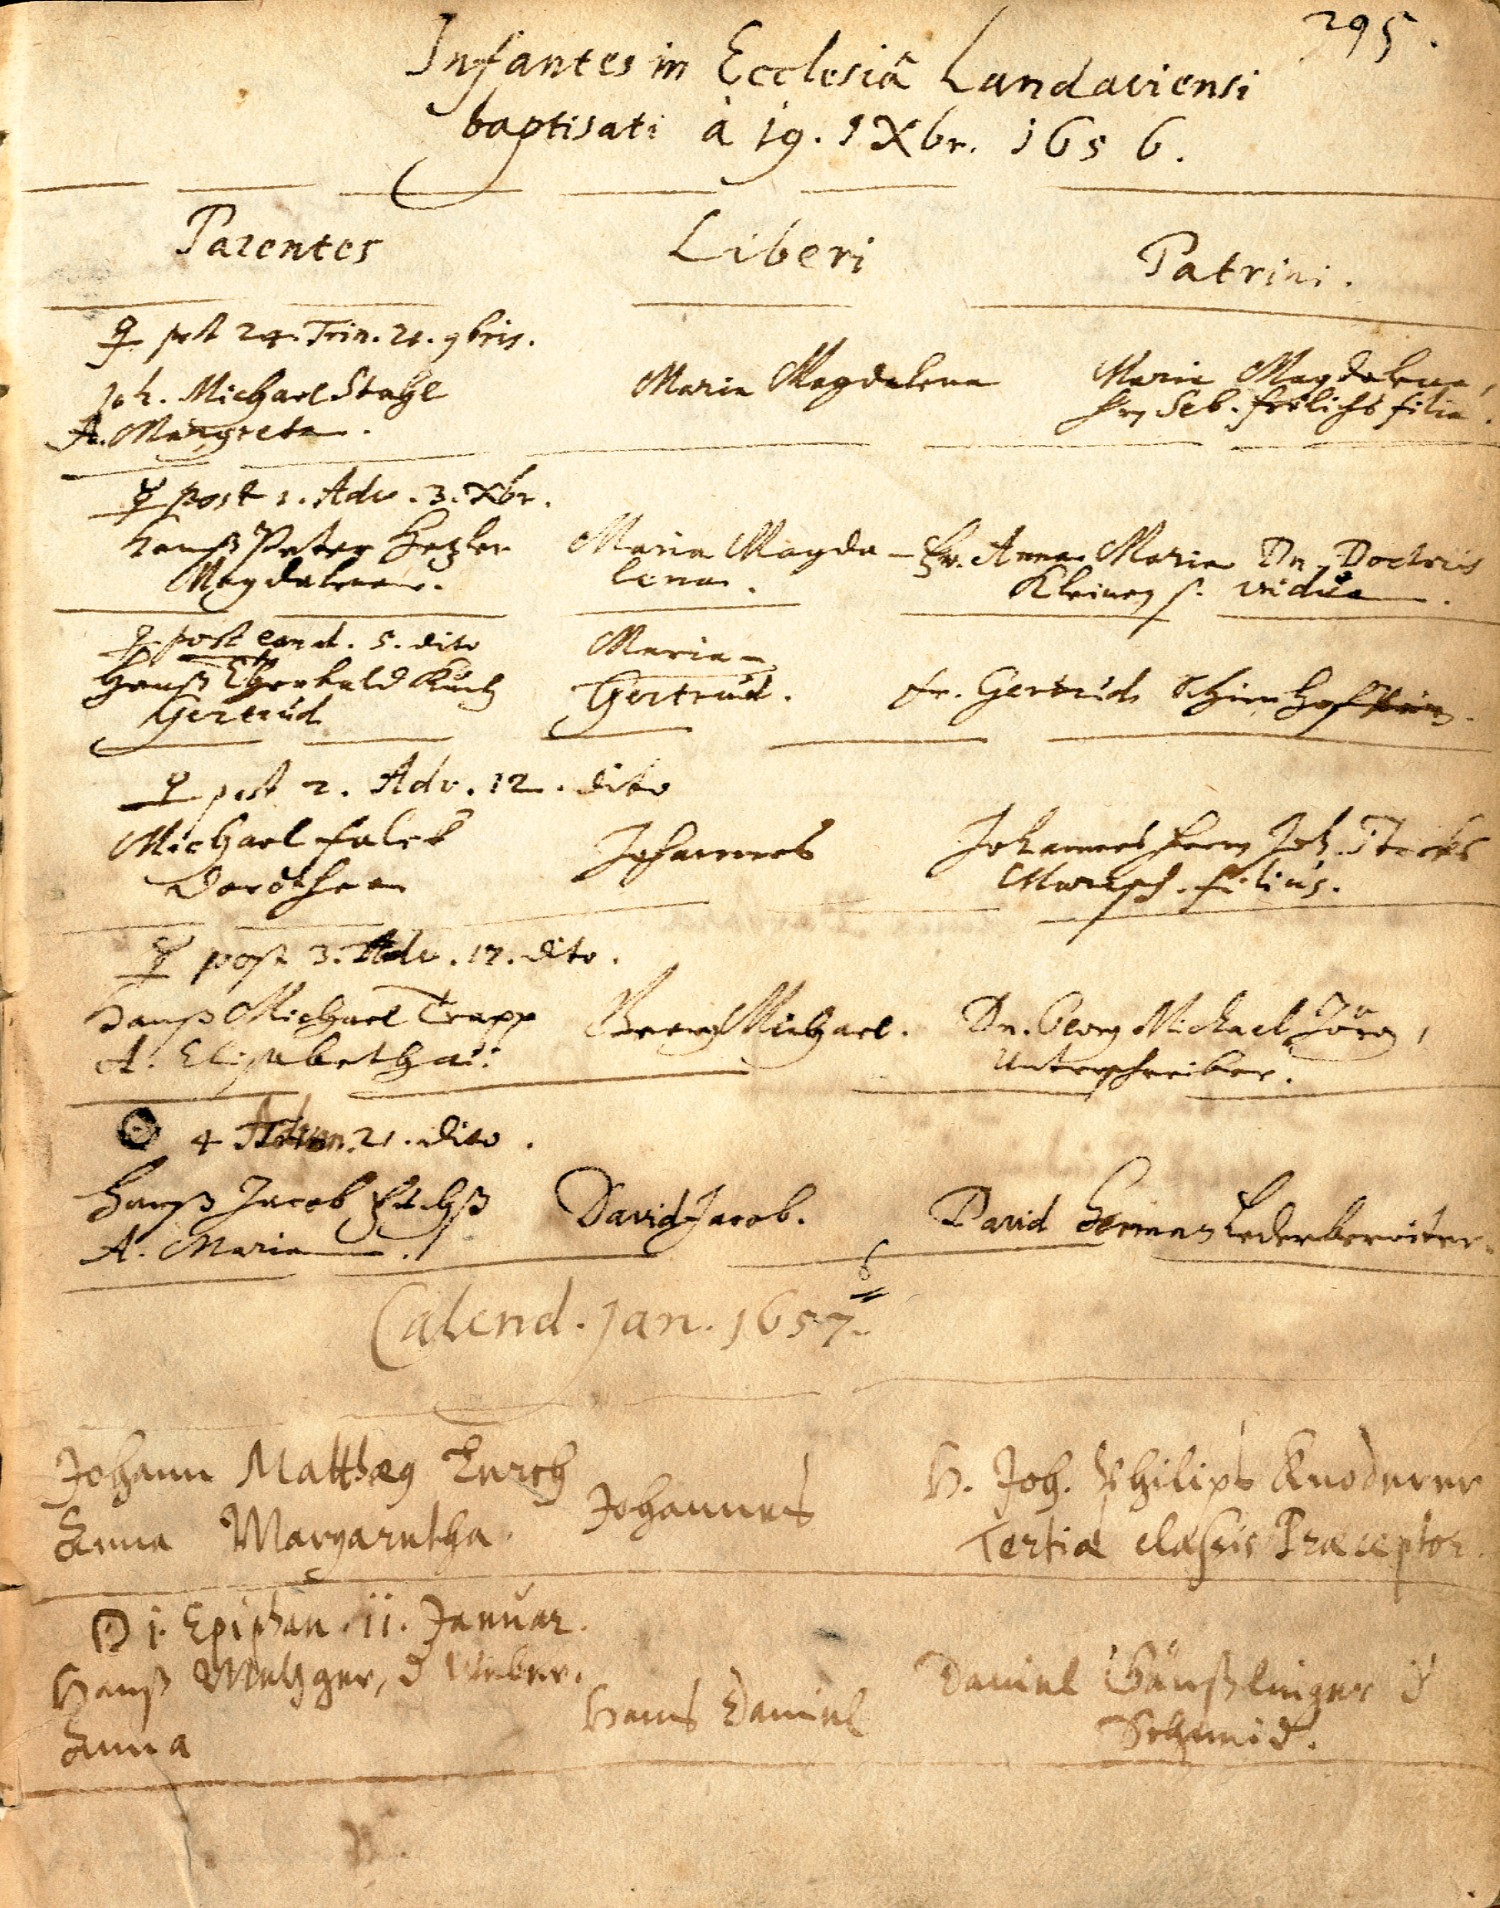 295.
Infantes in Ecclesiâ Landaviensi
baptisati à 19. 9Xbr. 1656.
Parentes Liberi Patrini.
♀ post 24. Trin. 21. 9bris.
Joh. Michael Stahl
A. Margreta.
Maria Magdalena
Maria Magdalena,
Hrn Seb. frölichs filia.
☿ post 1. Adv. 3. Xbr.
Hanß Peter Hetzler
Magdalena.
Maria Magda-
lena.
Fr. Anna Maria Dn. Doctris
Kleinen s. vidua.
♀ post eand. 5. dito
Hanß Theobald Kuch
Gertrud
Maria
Gertrud.
fr. Gertrud
♀ post 2. Adv. 12. dito
Michael Falck
Dorothea
Johannes
Johannes Herrn Joh.
Marsch. filius.
☿ post 3. Adv. 17. dito.
Hanß Michael Trapp
A. Elisabetha.
Georg Michael.
Dn. Georg Michael Jörg,
Unterschreiber.
☉ 4 Adven. 21. dito.
Hanß Jacob
A. Maria.
David Jacob.
David Herman Lederbereiter.
Calend. Jan. 1657.
Johann Matthaeus
Anna Margaretha.
Johannes
H. Joh. Philips Knoderer
Tertiae classis Praeceptor.
☉ 1. Epiphan. 11. Januar.
Hanß Metzger, d Weber.
Anna
Hans Daniel
Daniel Gänßlinger d
Schmid.